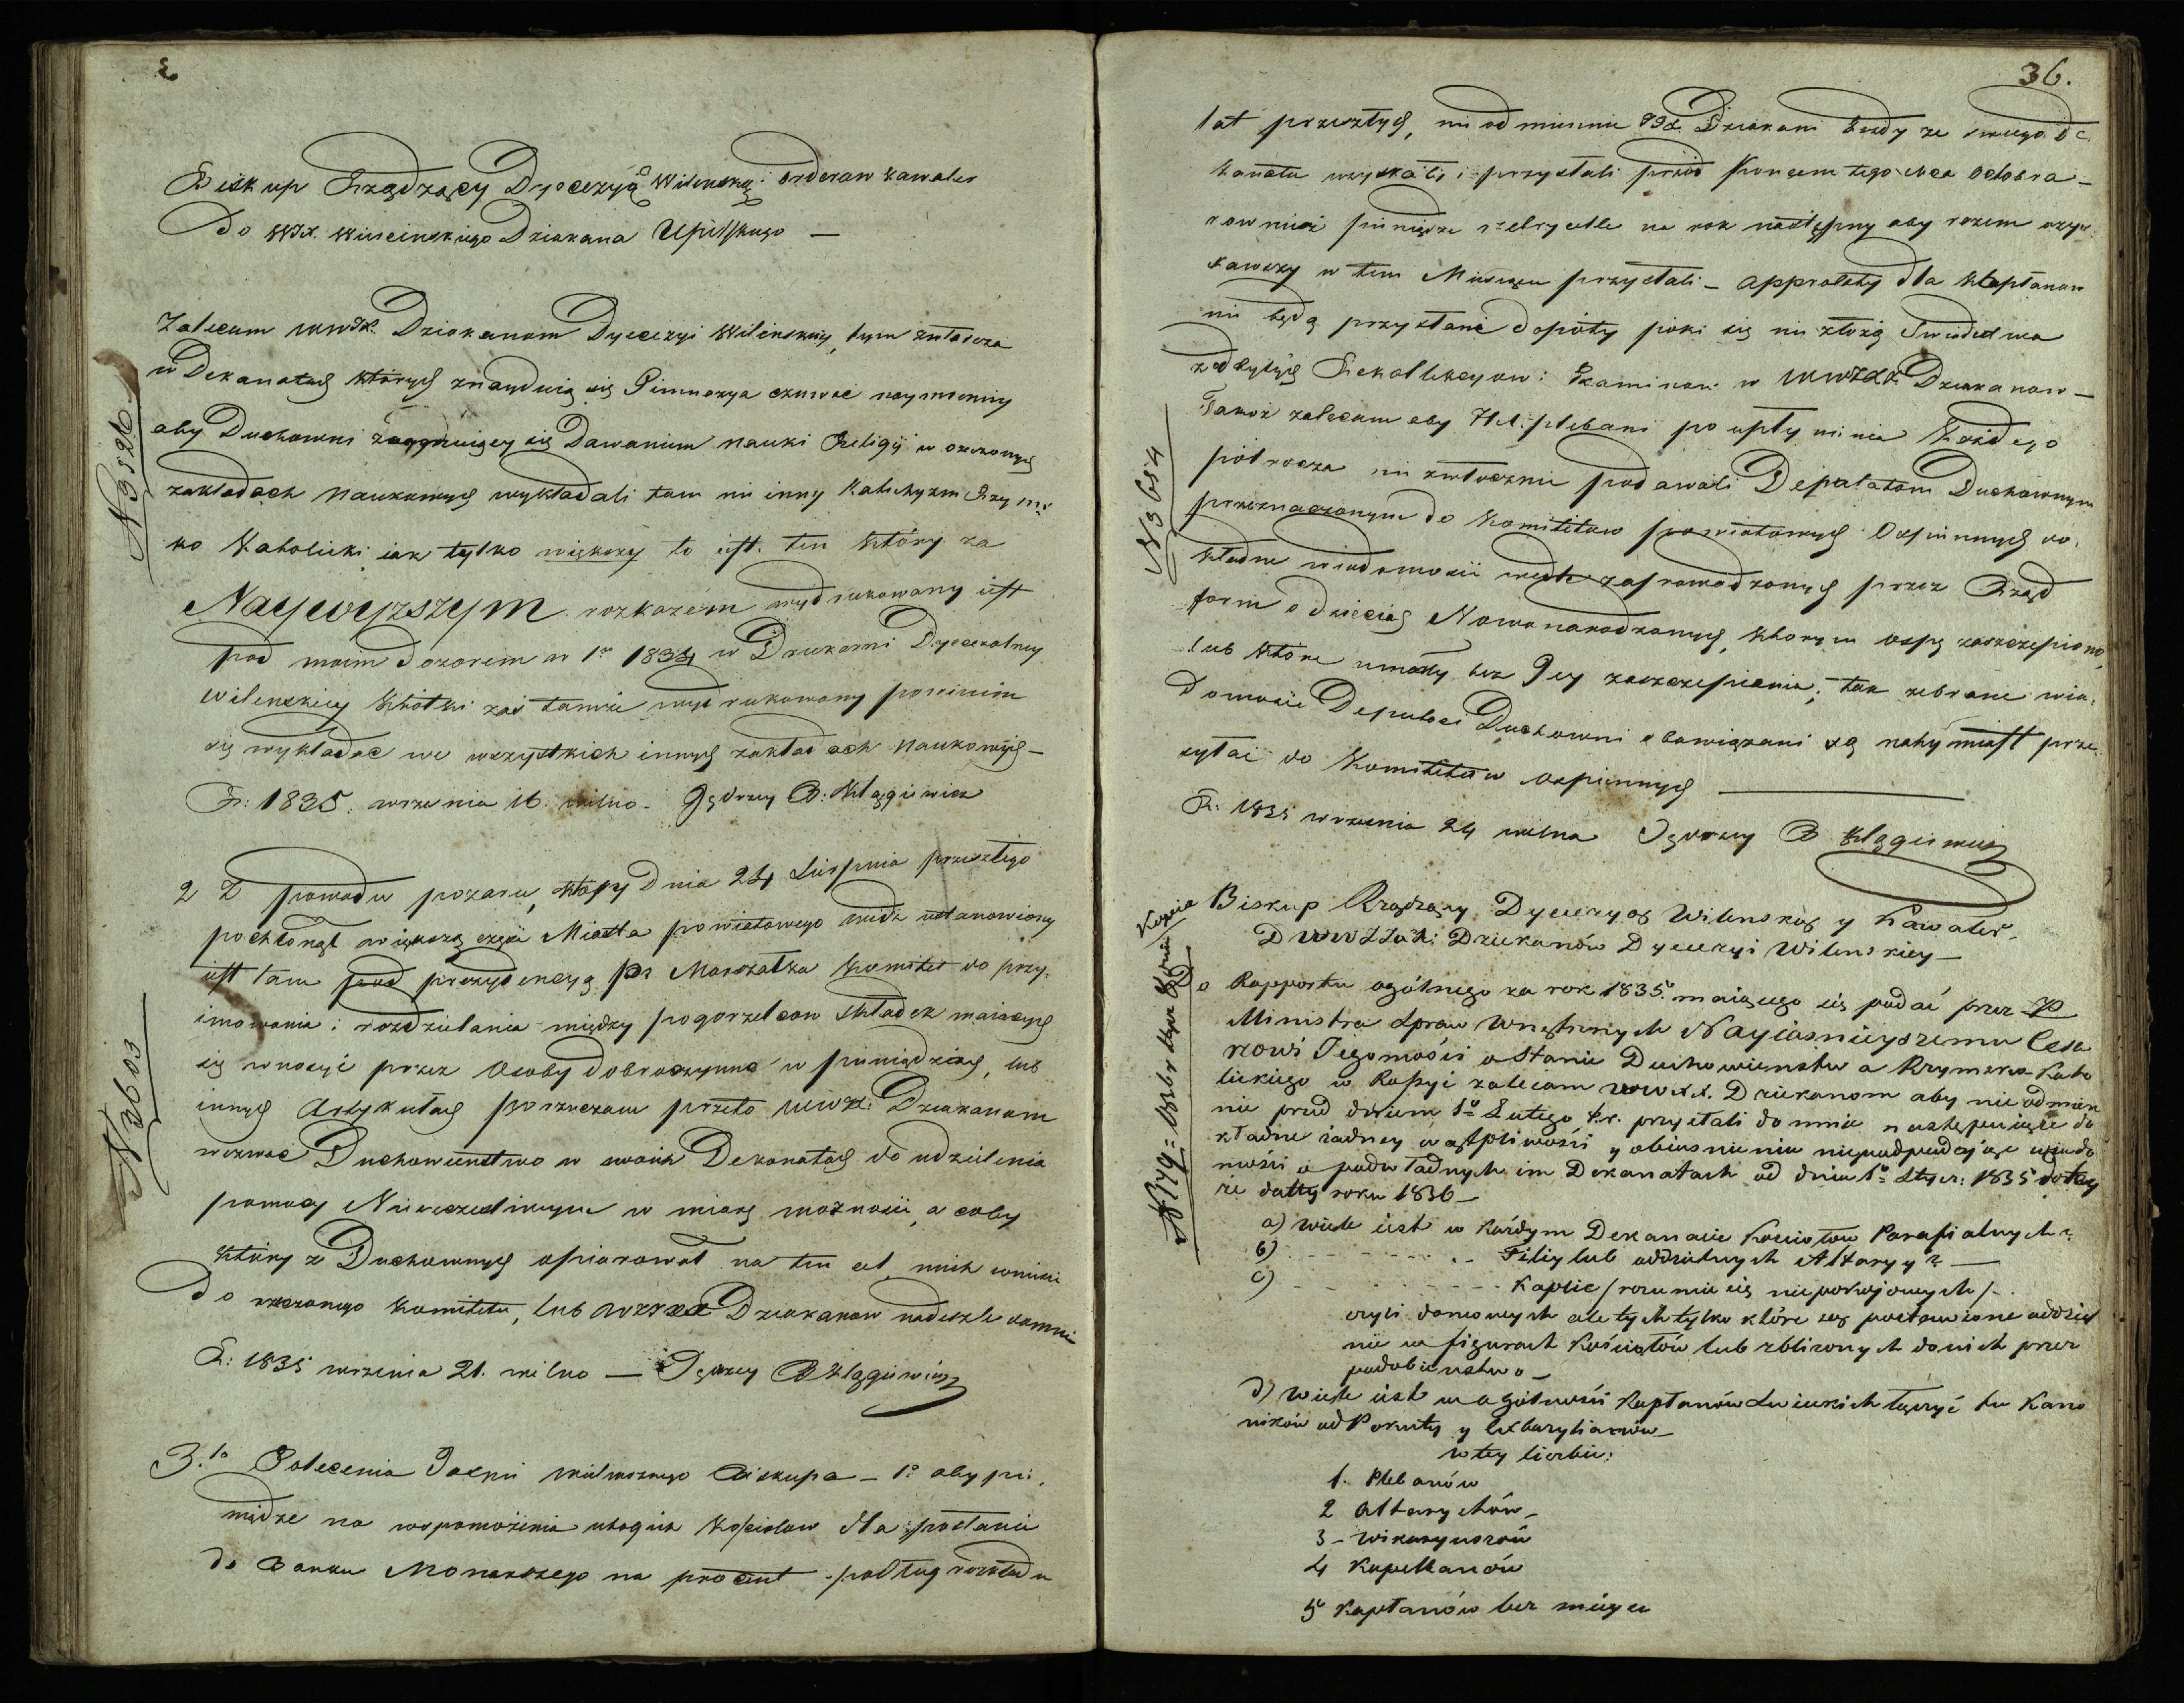 Biskup Rządzący Dyecezyą Wileńską i orderow kawaler
Do WJX. Wincinskiego Dziakana Upitskego —
N 3526
Zalecam WWJX. Dziakanom Dyecezyi Wilenskiey, tym zwłaszcza
w Dekanatach których znayduią się Gimnazya czuwać naymocniey
aby Duchowni zaymuiący się Dawaniem nauki Religij w orzeczonych
zakładach naukowych wykładali tam nie inny Katechyzm Rzyms
ko Katolicki iak tylko większy to iest ten który za
Naywyzszym rozkazem wydrukowany iest
pod moim dozorem w 1r 1834 w Drukarni Dyecezalney
Wilenskiey Krótki zaś tamże wydrukowany powinien
się wykładać we wszystkich innych zakładach naukowych —
R: 1835. wrzesnia 16. wilno. Jędrzey B: Kłągiewicz
2 Z powodu pozaru, który Dnia 24 Sierpnia przeszłego
pochłonął większą część Miasta powiatowego ustanowiony
iest tam pod prezydencyą Marszałka Komitet do przy
imowania i rozdzielania między pogorzelcow składek maiących
się wnosić przez Osoby dobroczynne w pieniądzach, lub
innych Artykułach poruczam przeto WWJX: Dziakanam
wezwać Duchowieństwo w swoich Dekanatach do udzielenia
pomocy Nieszczesliwym w miarę możności, a coby
N 3603
który z Duchownych ofiarował na ten cel, niech wniesie
do rzeczonego Komitetu, lub Dziakanow nadeszle
R: 1835 wrzesnia 21. wilno — Jędrzey B Kłągiewicz
3.io Polecenia Jasnie wielmoznego Biskupa — 1o aby pie
niądze na wspomożenia ubogich Kościołow dla posłania
do Banku Monarszego na procent podług rozkładu
36.
lat przeszłych, nie odmiennie Dziakani każdy ze swego De
kanatu uzyskali i przystali przed Koncem tego Octobra —
rownież pieniądze na rok następny aby razem
w tem Miesiącu przystali — approbaty dla Kapłanow
nie będą przysłane dopóty póki się nie złożą Swiadectwa
z odbytych Rekollekcyow i Examinow w WWJXX Dziakanow —
N 3654
Takoż zalecam aby Plebani po upłynieniu Każdego
pół rocza nie zwłocznie podawali Deputatom Duchownym
przeznaczonym do Komitetow powiatowych Ospinnych do
kładne wiadomości wedle zaprowadzonych przez Rząd
form o dzieciach Nowonarodzonych, którym ospę zaszczepiono,
lub które umarły bez Jey zaszczepienia; tak zebrane wia
domości Deputaci Duchowni obowiązani są natychmiast prze
syłać do Komitetow ospinnych
R: 1835 wrzesnia 24 wilna Jędrzey B Kłągiewicz
Kopia
Biskup Rządzący Dyecezyą Wilenską y Kawaler
D WWJXX: Dziekanów Dyecezyi Wilenskiey —
N 179
Do Rapportu ogólnego za rok 1835. maiącego się podać przez P
Ministra Spraw Wnętrznych Nayiasnieyszemu Cesa
rzowi Jegomości o Stanie Duchowieństwa Rzymsko Kato
lickiego w Rossyi zalecam WWXX. Dziekanom aby nie odmien
nie przed dniem 1o Lutego b.r. przysłali do mnie następuiące do
kładne żadney wątpliwości y obiasnieniu niepodpadające wiado
mości o podwładnych im Dekanatach od dnia 1o Stycz: 1835 do tey
że datty roku 1836 —
a) Wiele iest w Każdym Dekanacie Kościołow Parafialnych?
b) - - - - - - Filiy lub oddzielnych Altaryy? —
c) - - - - - - Kaplic /rozumie się nie pokojowych/
czyli domowych ale tych tylko które są postawione oddziel
nie w figurach Kościołów lub zbliżonych do nich przez
podobieństwo —
d) Wiele iest w ogólności Kapłanów Swieckich łącząć tu Kano
ników od Pokuty y Exbazylianów —
w tey liczbie:
1. Plebanów
2 Altarystów —
3 — Wikaryuszów
4 Kapellanów
5 Kapłanów bez mieysc